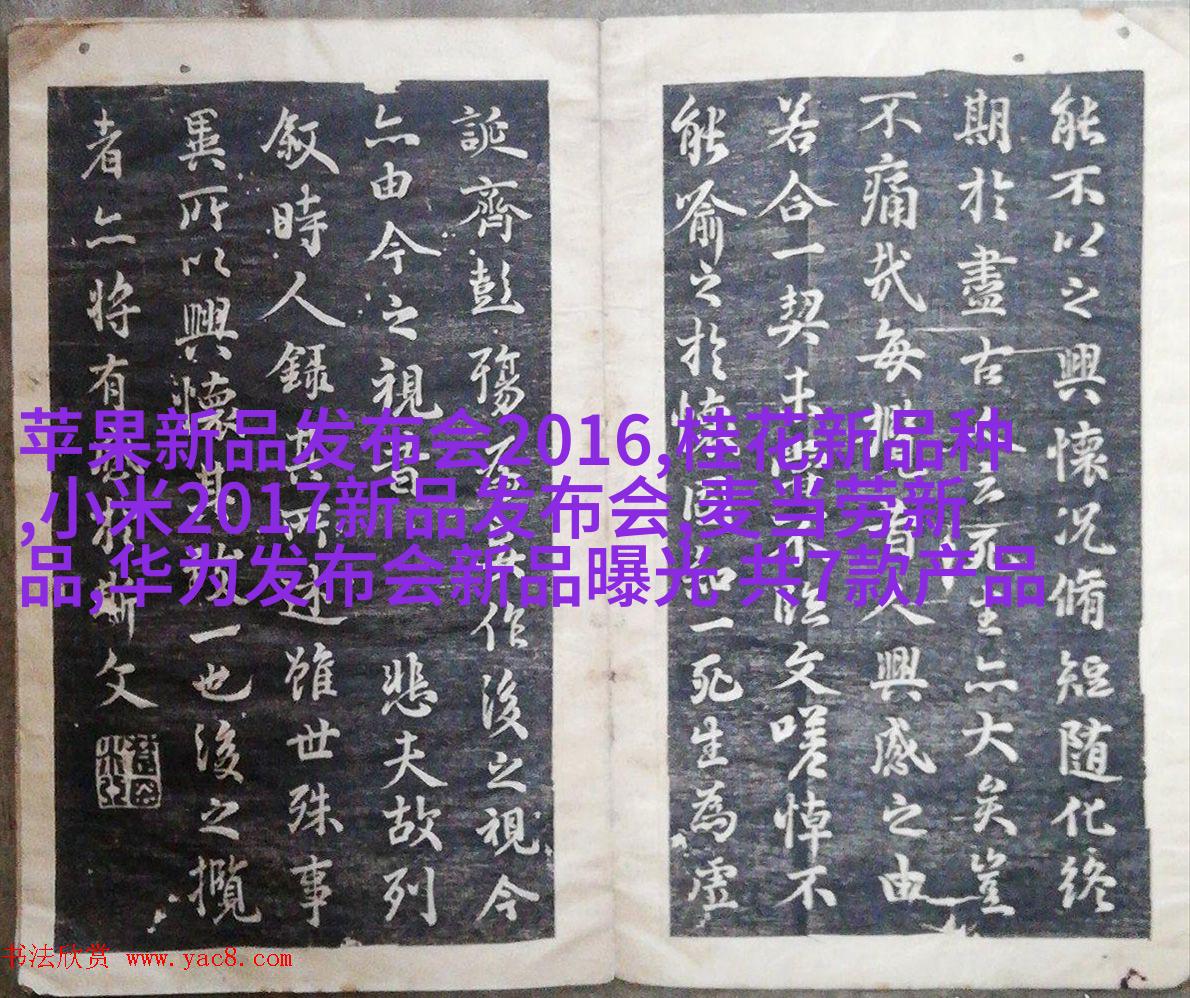 能不以之興懷况脩短随化終
期於盡古云死生亦大矣豈
不痛哉每人興感之由
若合一契未不臨文嗟悼不
能喻之於懷固知一死生為虛
誕齊彭殤為作後之視今
亦由今之視昔悲夫故列
敘時人錄其所述雖世殊事
異所以興懷其一也後之攬
者亦將有斯文
苹果新品发布会2016,桂花新品种
,小米2017新品发布会,麦当劳新
品,华为发布会新品曝光 共7款产品
书法欣赏 www.yac8.com